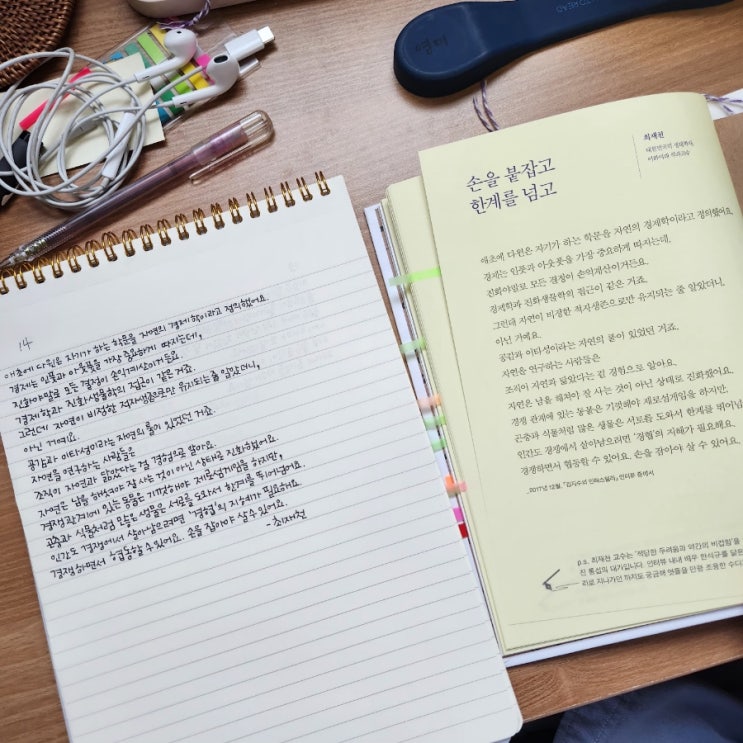 14
애초에 다윈은 자기가 하는 학문을 자연의 경제학이라고 정의했어요.
경제는 인풋과 아웃풋을 가장 중요하게 따지는데,
진화야말로 모든 결정이 손익계산이거든요.
경제학과 진화생물학의 접근이 같은 거죠.
그런데 자연이 비정한 적자생존으로만 유지되는 줄 알았더니,
아닌 거예요.
공감과 이타성이라는 자연의 룰이 있었던 거죠.
자연을 연구하는 사람들은
조직이 자연과 닮았다는 걸 경험으로 알아요.
자연은 남을 해쳐야 잘 사는 것이 아닌 상태로 진화했어요.
경쟁관계에 있는 동물은 기껏해야 제로섬게임을 하지만,
곤충과 식물처럼 많은 생물은 서로를 도와서 한계를 뛰어넘어요.
인간도 경쟁에서 살아남으려면 '경협'의 지혜가 필요해요.
경쟁하면서 협동할 수 있어요. 손을 잡아야 살 수 있어요.
- 최재천
손을 붙잡고
한계를 넘고
최재천
대한민국의 생태학자,
이화여대 석좌교수
애초에 다윈은 자기가 하는 학문을 자연의 경제학이라고 정의했어요.
경제는 인풋과 아웃풋을 가장 중요하게 따지는데,
진화야말로 모든 결정이 손익계산이거든요.
경제학과 진화생물학의 접근이 같은 거죠.
그런데 자연이 비정한 적자생존으로만 유지되는 줄 알았더니,
아닌 거예요.
공감과 이타성이라는 자연의 룰이 있었던 거죠.
자연을 연구하는 사람들은
조직이 자연과 닮았다는 걸 경험으로 알아요.
자연은 남을 해쳐야 잘 사는 것이 아닌 상태로 진화했어요.
경쟁 관계에 있는 동물은 기껏해야 제로섬게임을 하지만,
곤충과 식물처럼 많은 생물은 서로를 도와서 한계를 뛰어넘
인간도 경쟁에서 살아남으려면 '경협'의 지혜가 필요해요.
경쟁하면서 협동할 수 있어요. 손을 잡아야 살 수 있어요.
_2017년 12월, 「김지수의 인터스텔라」 인터뷰 중에서
p.s. 최재천 교수는 '적당한 두려움과 약간의 비겁함'을
진 통섭의 대가입니다. 인터뷰 내내 배우 한석규를 닮은
리로 지나가던 까치도 궁금해 엿들을 만큼 조용한 수다